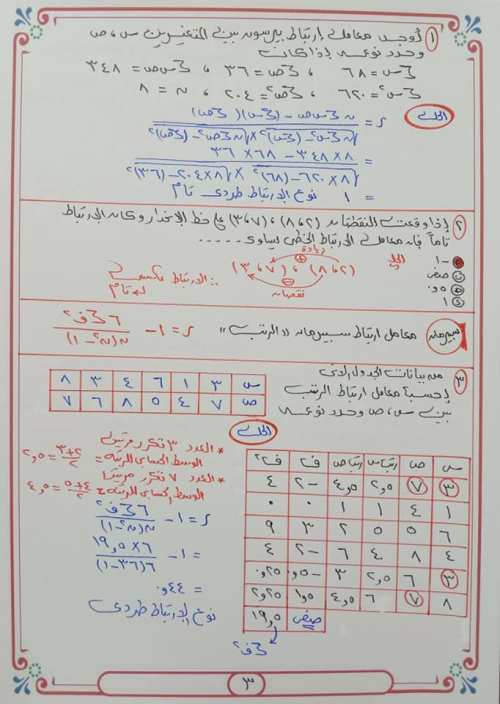 ١ أوجد معامل ارتباط بيرسون بين المتغيرين س، ص
وحدد نوعه إذا كان
ɜس = ٦٨ ، ɜص = ٣٦ ، ɜس ص = ٣٤٨
ɜس٢ = ٦٢٠ ، ɜص٢ = ٢٠٤ ، ن = ٨
الحل
ر = ن ɜس ص - (ɜس)(ɜص) / √ن ɜس٢ - (ɜس)٢ × √ن ɜص٢ - (ɜص)٢
= ٨×٣٤٨ - ٦٨×٣٦ / √٨×٦٢٠ - (٦٨)٢ × √٨×٢٠٤ - (٣٦)٢
= ١ نوع الارتباط طردى تام
٢ إذا وقعت النقطتان (٢، ٨)، (٧، ٣) على خط الانحدار وكان الارتباط
تاماً فإن معامل الارتباط الخطى يساوى . . . . .
- ١
صفر
٠,٥
١
الحل
زيادة
(٢، ٨) ، (٧، ٣)
نقصان
∴ الارتباط عكسى
تام
سبيرمان معامل ارتباط سبيرمان "الرتب" ر = ١ - ٦ ɜ ف٢ / ن(ن٢ - ١)
٣ من بيانات الجدول الآتى
إحسب معامل ارتباط الرتب
بين س، ص وحدد نوعه
س ٣ ١ ٦ ٤ ٣ ٨
ص ٧ ٤ ٥ ٨ ٦ ٧
الحل
س ص رتب س رتب ص ف ف٢
٣ ٧ ٢,٥ ٤,٥ -٢ ٤
١ ٤ ١ ١ ٠ ٠
٦ ٥ ٥ ٢ ٣ ٩
٤ ٨ ٤ ٦ -٢ ٤
٣ ٦ ٢,٥ ٣ -٠,٥ ٠,٢٥
٨ ٧ ٦ ٤,٥ ١,٥ ٢,٢٥
صفر ١٩,٥
ɜ ف٢
* العدد ٣ تكرر مرتين
الوسط الحسابى للرتبة = ٢+٣ / ٢ = ٢,٥
* العدد ٧ تكرر مرتين
الوسط الحسابى للرتبة = ٤+٥ / ٢ = ٤,٥
ر = ١ - ٦ ɜ ف٢ / ن(ن٢ - ١)
= ١ - ٦×١٩,٥ / ٦(٣٦-١)
= ٠,٤٤
نوع الارتباط طردى
٣